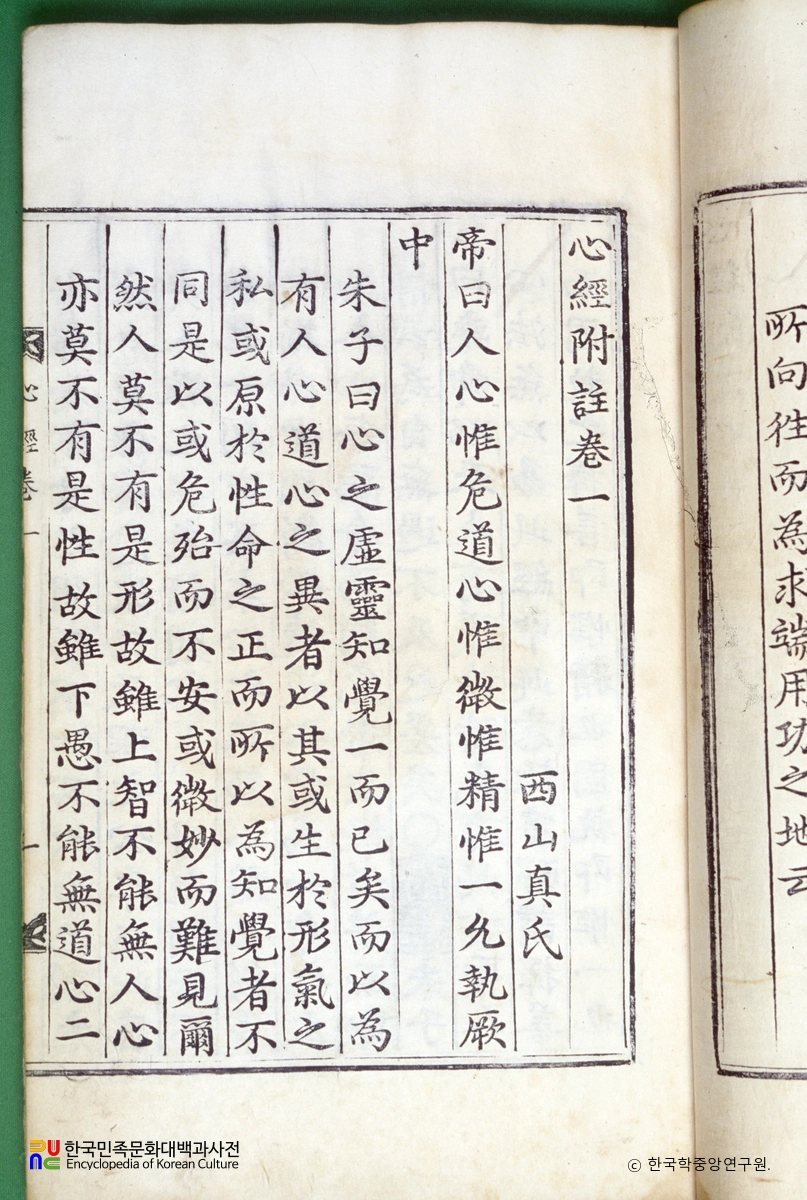 所向往而為求端用功之地云
心經附註卷一
西山真氏
帝曰人心惟危道心惟微惟精惟一允執厥
中
朱子曰心之虛靈知覺一而已矣而以為
有人心道心之異者以其或生於形氣之
私或原於性命之正而所以為知覺者不
同是以或危殆而不安或微妙而難見爾
然人莫不有是形故雖上智不能無人心
亦莫不有是性故雖下愚不能無道心二
心經卷一
一
한국민족문화대백과사전
Encyclopedia of Korean Culture
ⓒ 한국학중앙연구원.